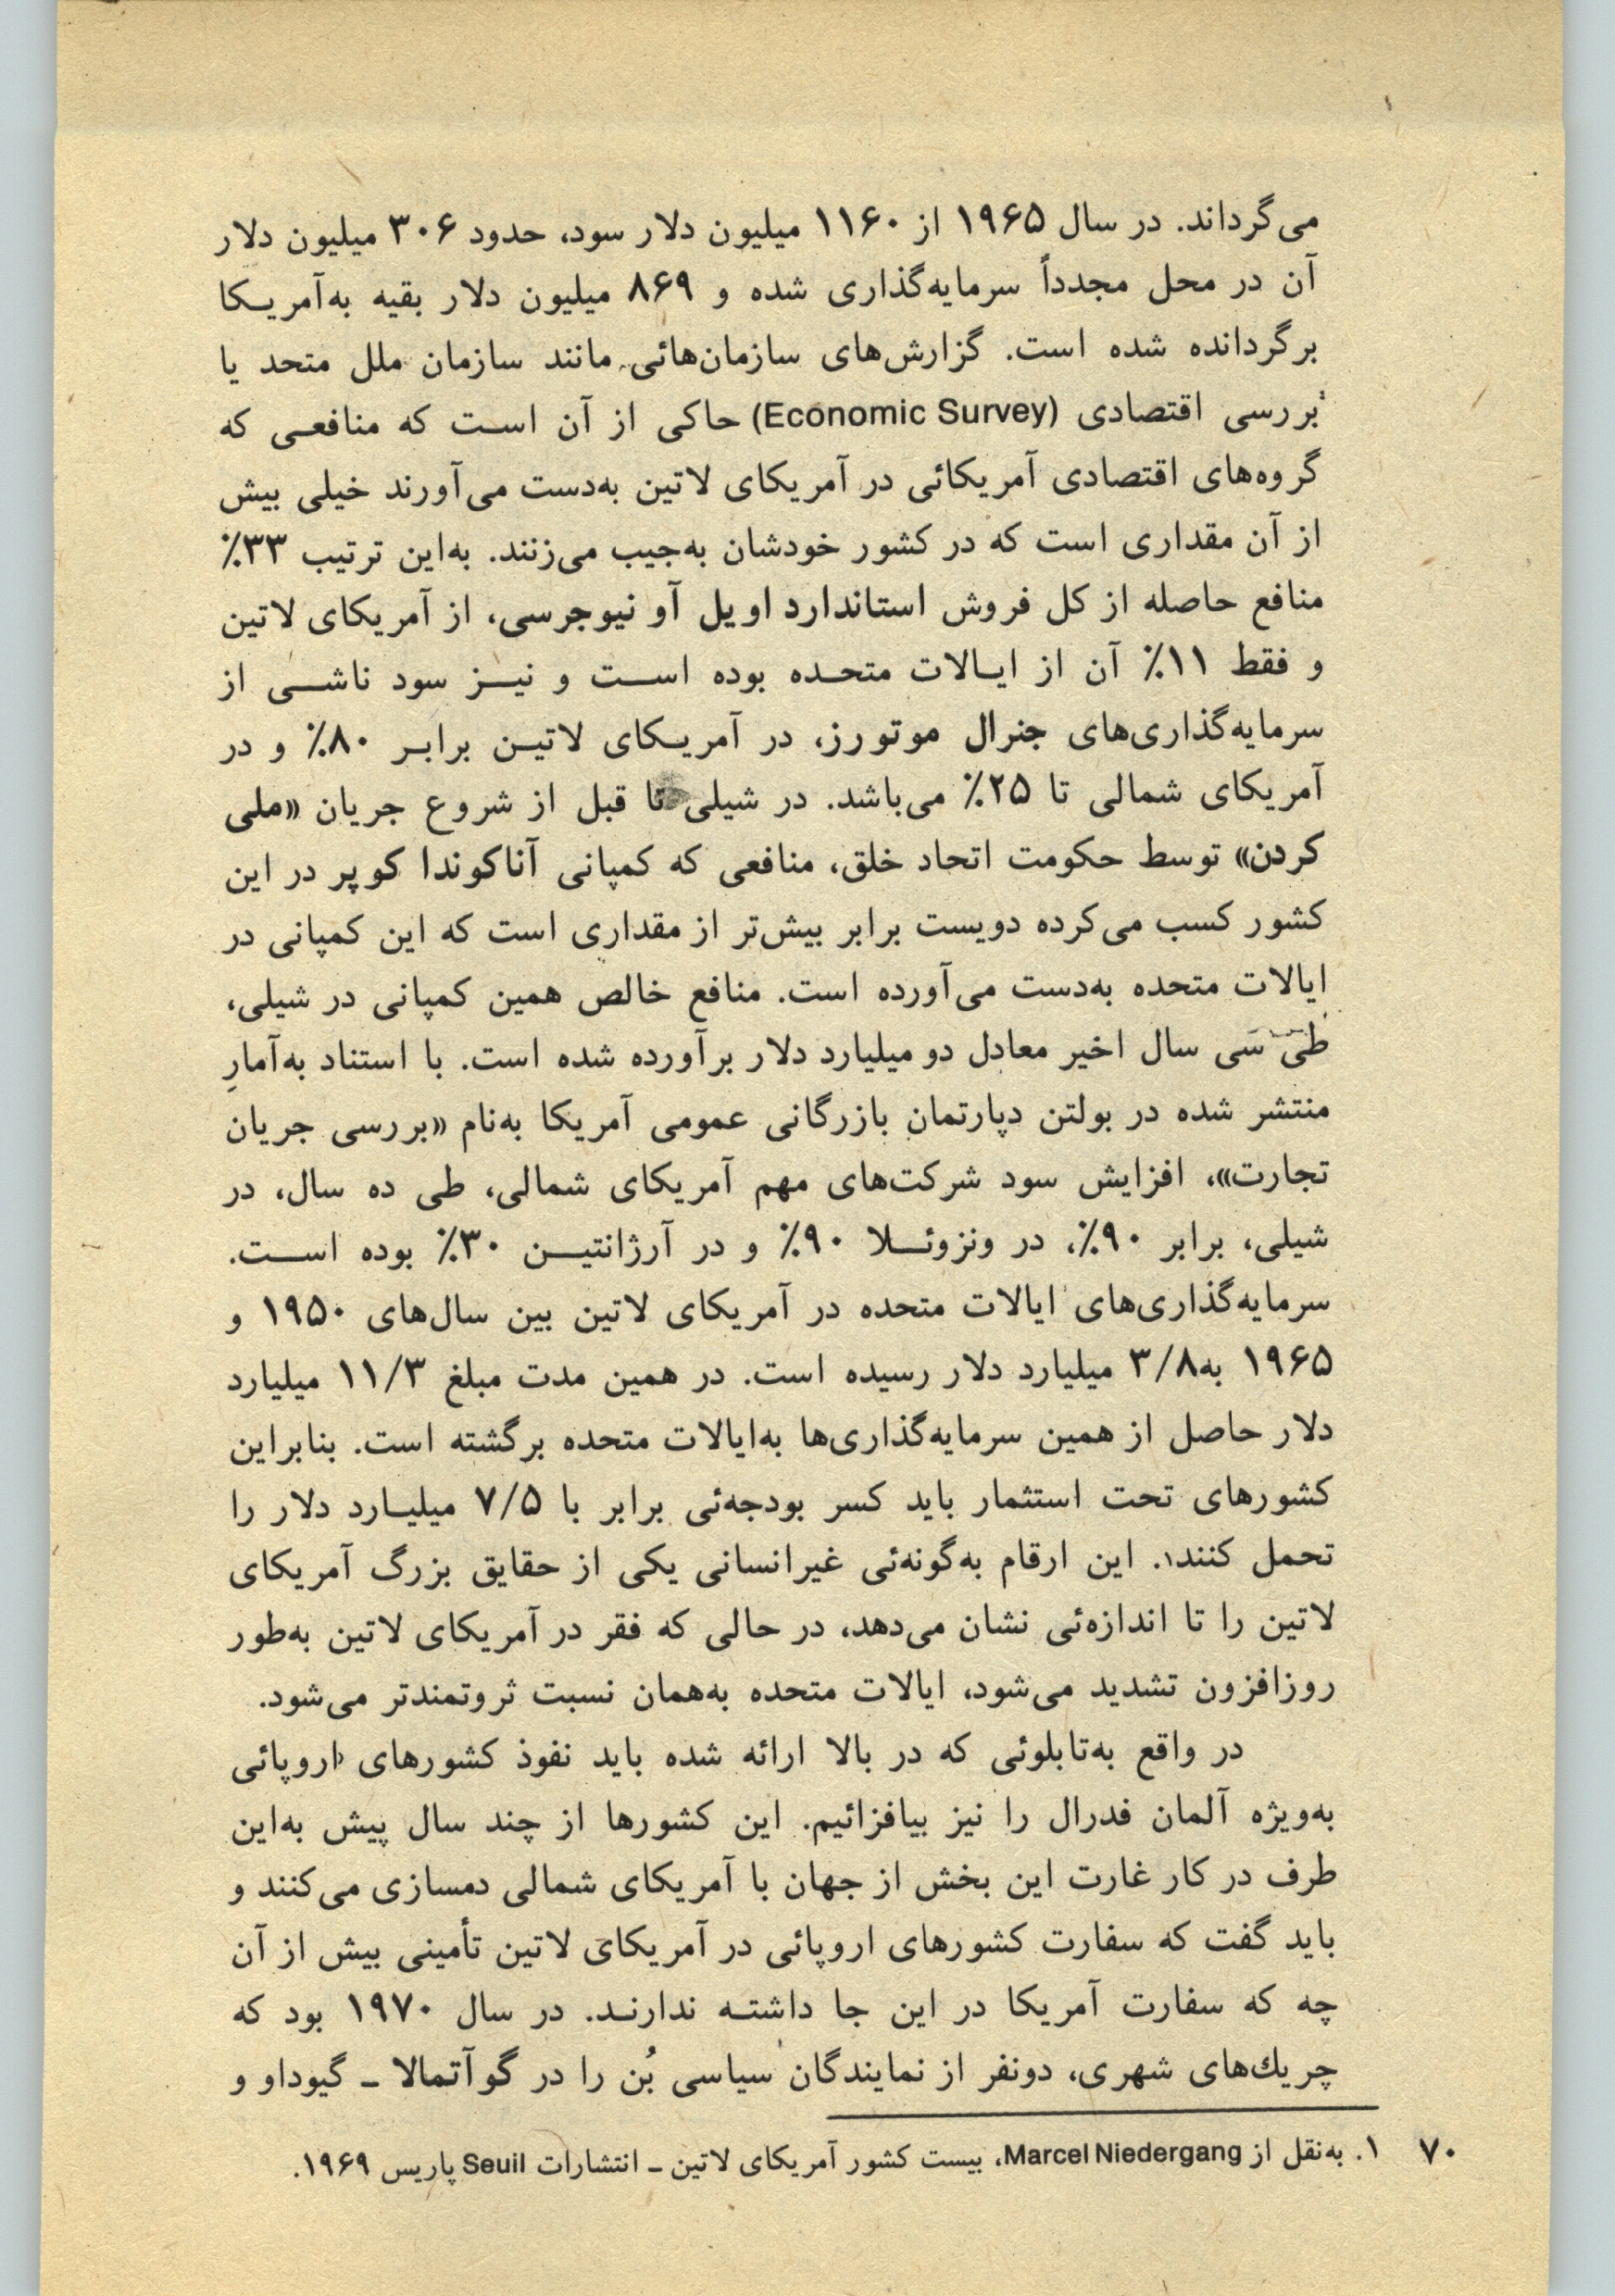 می‌گرداند. در سال ۱۹۶۵ از ۱۱۶۰ میلیون دلار سود، حدود ۳۰۶ میلیون دلار
آن در محل مجدداً سرمایه‌گذاری شده و ۸۶۹ میلیون دلار بقیه به‌آمریکا
برگردانده شده است. گزارش‌های سازمان‌هائی مانند سازمان ملل متحد یا
بررسی اقتصادی (Economic Survey) حاکی از آن است که منافعی که
گروه‌های اقتصادی آمریکائی در آمریکای لاتین به‌دست می‌آورند خیلی بیش
از آن مقداری است که در کشور خودشان به‌جیب می‌زنند. به‌این ترتیب ۳۳٪
منافع حاصله از کل فروش استاندارد اویل آو نیوجرسی، از آمریکای لاتین
و فقط ۱۱٪ آن از ایالات متحده بوده است و نیز سود ناشی از
سرمایه‌گذاری‌های جنرال موتورز، در آمریکای لاتین برابر ۸۰٪ و در
آمریکای شمالی تا ۲۵٪ می‌باشد. در شیلی تا قبل از شروع جریان «ملی
کردن» توسط حکومت اتحاد خلق، منافعی که کمپانی آناکوندا کوپر در این
کشور کسب می‌کرده دویست برابر بیش‌تر از مقداری است که این کمپانی در
ایالات متحده به‌دست می‌آورده است. منافع خالص همین کمپانی در شیلی،
طی سی سال اخیر معادل دو میلیارد دلار برآورده شده است. با استناد به‌آمارِ
منتشر شده در بولتن دپارتمان بازرگانی عمومی آمریکا به‌نام «بررسی جریان
تجارت»، افزایش سود شرکت‌های مهم آمریکای شمالی، طی ده سال، در
شیلی، برابر ۹۰٪، در ونزوئلا ۹۰٪ و در آرژانتین ۳۰٪ بوده است.
سرمایه‌گذاری‌های ایالات متحده در آمریکای لاتین بین سال‌های ۱۹۵۰ و
۱۹۶۵ به۳/۸ میلیارد دلار رسیده است. در همین مدت مبلغ ۱۱/۳ میلیارد
دلار حاصل از همین سرمایه‌گذاری‌ها به‌ایالات متحده برگشته است. بنابراین
کشورهای تحت استثمار باید کسر بودجه‌ئی برابر با ۷/۵ میلیارد دلار را
تحمل کنند۱. این ارقام به‌گونه‌ئی غیرانسانی یکی از حقایق بزرگ آمریکای
لاتین را تا اندازه‌ئی نشان می‌دهد، در حالی که فقر در آمریکای لاتین به‌طور
روزافزون تشدید می‌شود، ایالات متحده به‌همان نسبت ثروتمندتر می‌شود.
در واقع به‌تابلوئی که در بالا ارائه شده باید نفوذ کشورهای اروپائی
به‌ویژه آلمان فدرال را نیز بیافزائیم. این کشورها از چند سال پیش به‌این
طرف در کار غارت این بخش از جهان با آمریکای شمالی دمسازی می‌کنند و
باید گفت که سفارت کشورهای اروپائی در آمریکای لاتین تأمینی بیش از آن
چه که سفارت آمریکا در این جا داشته ندارند. در سال ۱۹۷۰ بود که
چریك‌های شهری، دونفر از نمایندگان سیاسی بُن را در گوآتمالا ـ گیوداو و
۷۰ ۱. به‌نقل از Marcel Niedergang، بیست کشور آمریکای لاتین ـ انتشارات Seuil پاریس ۱۹۶۹.